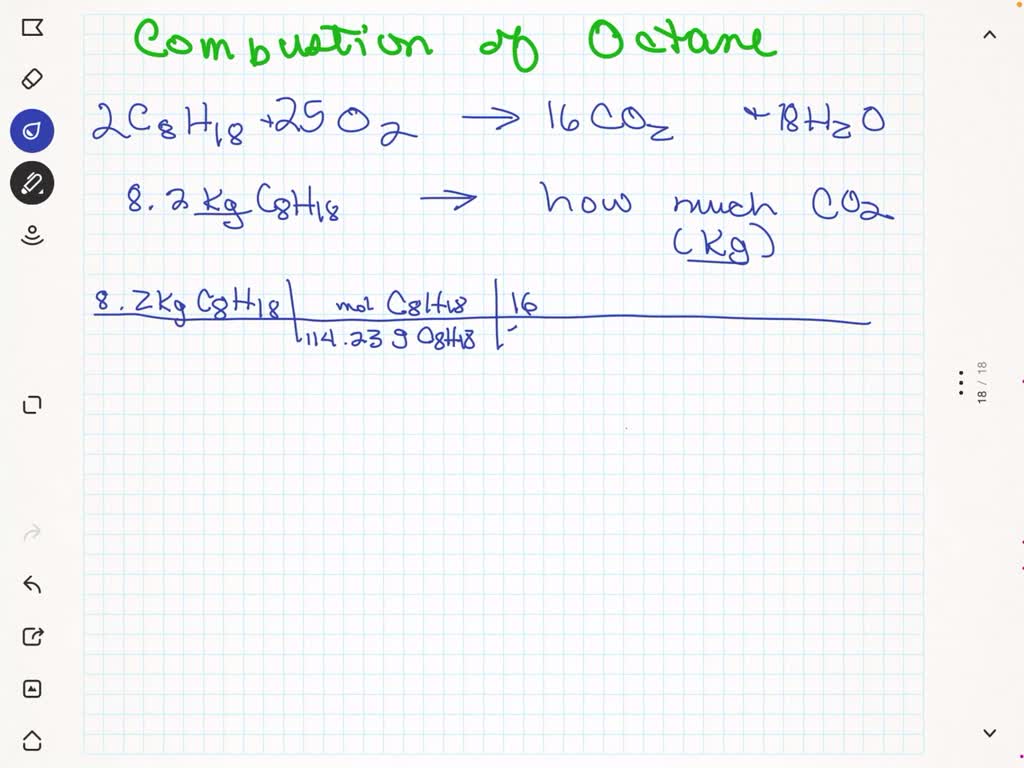 Combustion of Octane
2C8H18 + 25O2 → 16CO2 + 18H2O
8.2 Kg C8H18 → how much CO2
(Kg)
8.2 Kg C8H18 | mol C8H18 | 16
114.23 g C8H18
18 / 18